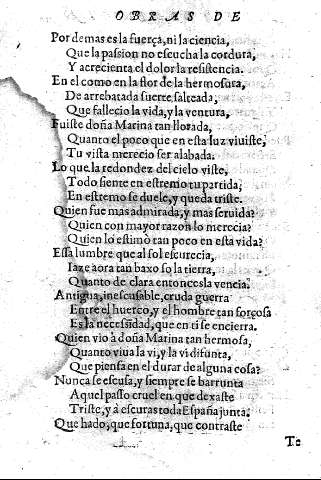 OBRAS DE
Por demas es la fuerça, ni la ciencia,
Que la passion no escucha la cordura,
Y acrecienta el dolor la resistencia.
En el como en la flor de la hermosura,
De arrebatada suerte salteada,
Que fallecio la vida, y la ventura,
Fuiste doña Marina tan llorada,
Quanto el poco que en esta luz viuiste,
Tu vista merecio ser alabada.
Lo que la redondez del cielo viste,
Todo siente en estremo tu partida,
En estremo se duele, y queda triste.
Quien fue mas admirada, y mas seruida?
Quien con mayor razon lo merecia?
Quien lo estimò tan poco en esta vida?
Essa lumbre que al sol escurecia,
Iaze aora tan baxo so la tierra,
Quanto de clara entonces la vencia.
Antigua, inescusable, cruda guerra
Entre el huerco, y el hombre tan forçosa
Es la necessidad, que en ti se encierra.
Quien vio à doña Marina tan hermosa,
Quanto viua la vi, y la vi difunta,
Que piensa en el durar de alguna cosa?
Nunca se escusa, y siempre se barrunta
Aquel passo cruel en que dexaste
Triste, y à escuras toda España junta.
Que hado, que fortuna, que contraste
Te